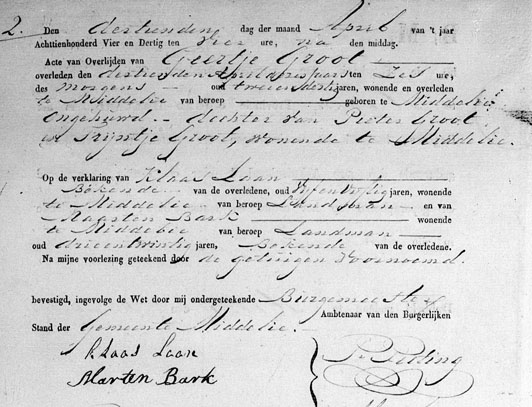 2. Den dertienden dag der maand April van 't jaar
Achttienhonderd Vier en Dertig ten vier ure, na den middag.
Acte van Overlijden van Geertje Groot
overleden den dertienden April dezes jaars ten Zes ure,
des morgens oud jaren, wonende en overleden
te Middelie van beroep geboren te Middelie
ongehuwd. dochter van Pieter Groot
en Trijntje Groot, wonende te Middelie.
Op de verklaring van Klaas Laan
Bekende van de overledene, oud jaren, wonende
te Middelie van beroep Landman en van
Maarten Bark wonende
te Middelie van beroep Landman
oud drieentwintig jaren, Bekende van de overledene.
Na mijne voorlezing geteekend door de getuigen voornoemd.
bevestigd, ingevolge de Wet door mij ondergeteekende Burgemeester
Ambtenaar van den Burgerlijken
Stand der Gemeente Middelie.
Klaas Laan
Marten Bark